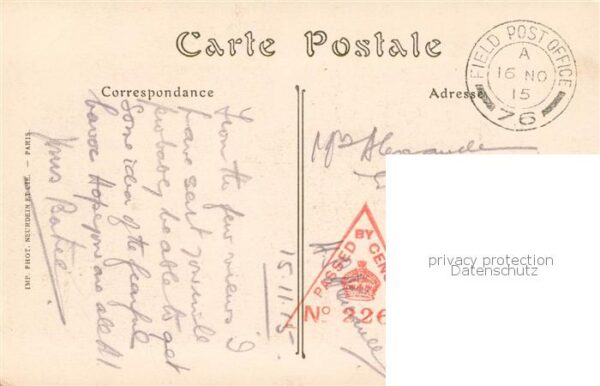 Carte Postale
Correspondance
Adresse
FIELD POST OFFICE
A
16 NO
15
76
Mrs Alexander
From the few views I
have sent you will
probably be able to get
some idea of the fearful
havoc Hope you are all A1
Yours
15.11.15
PASSED BY CENS
No 226
IMP. PHOT. NEURDEIN ET CIE. — PARIS.
privacy protection
Datenschutz